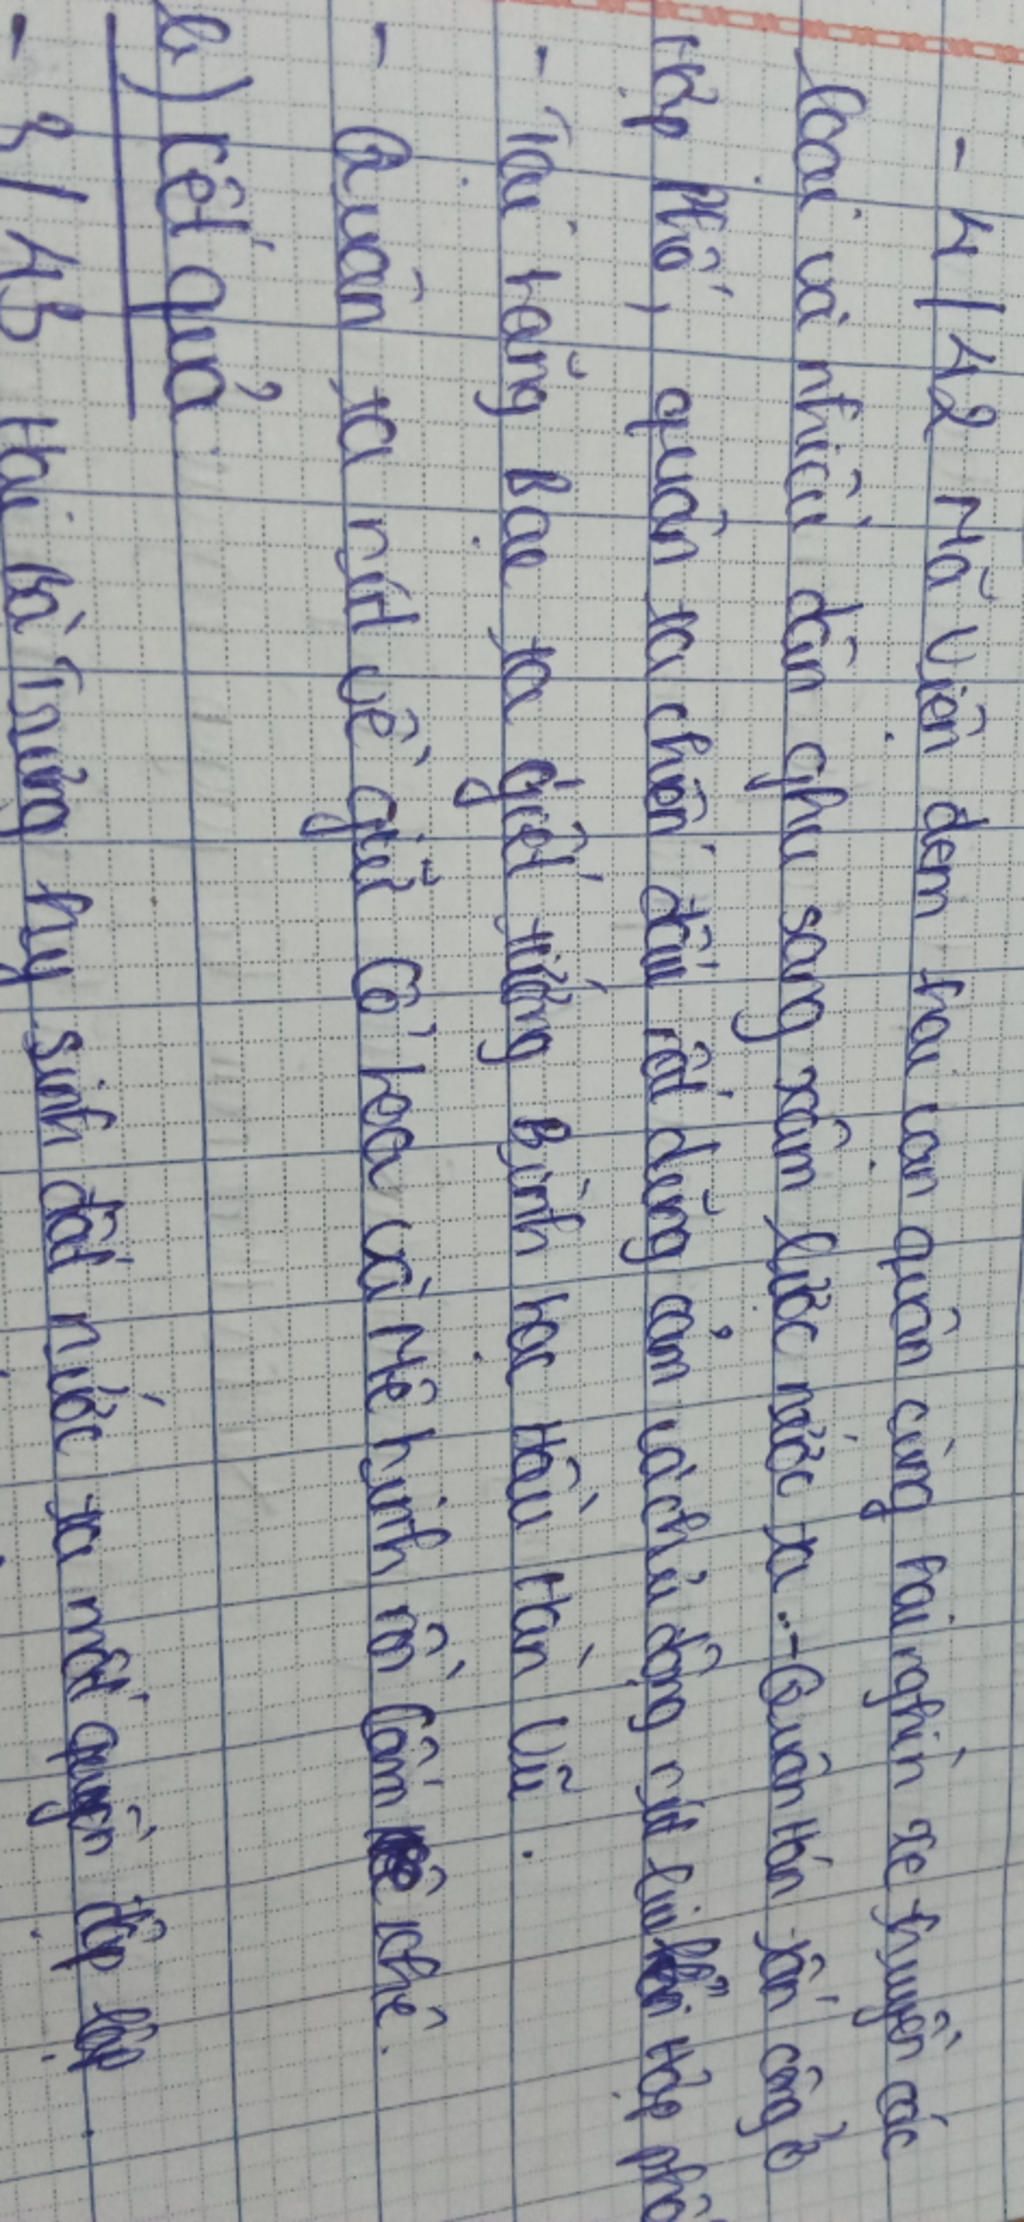 - 4/42 Mã Viện đem hai vạn quân cùng hai nghìn xe thuyền các
loại và nhiều dân phu sang xâm lược nước ta. - Quân Hán tấn công ở
Hợp Phố, quân ta chiến đấu rất dũng cảm và chủ động rút khỏi Hợp Phố
- Tại Lãng Bạc ta giết tướng Bình Lạc Hầu Hàn Vũ.
- Quân ta rút về giữ Cổ Loa và Mê Linh rồi Cấm Khê.
b) Kết quả
- 3/43 Hai Bà Trưng hy sinh đất nước ta mất quyền độc lập.